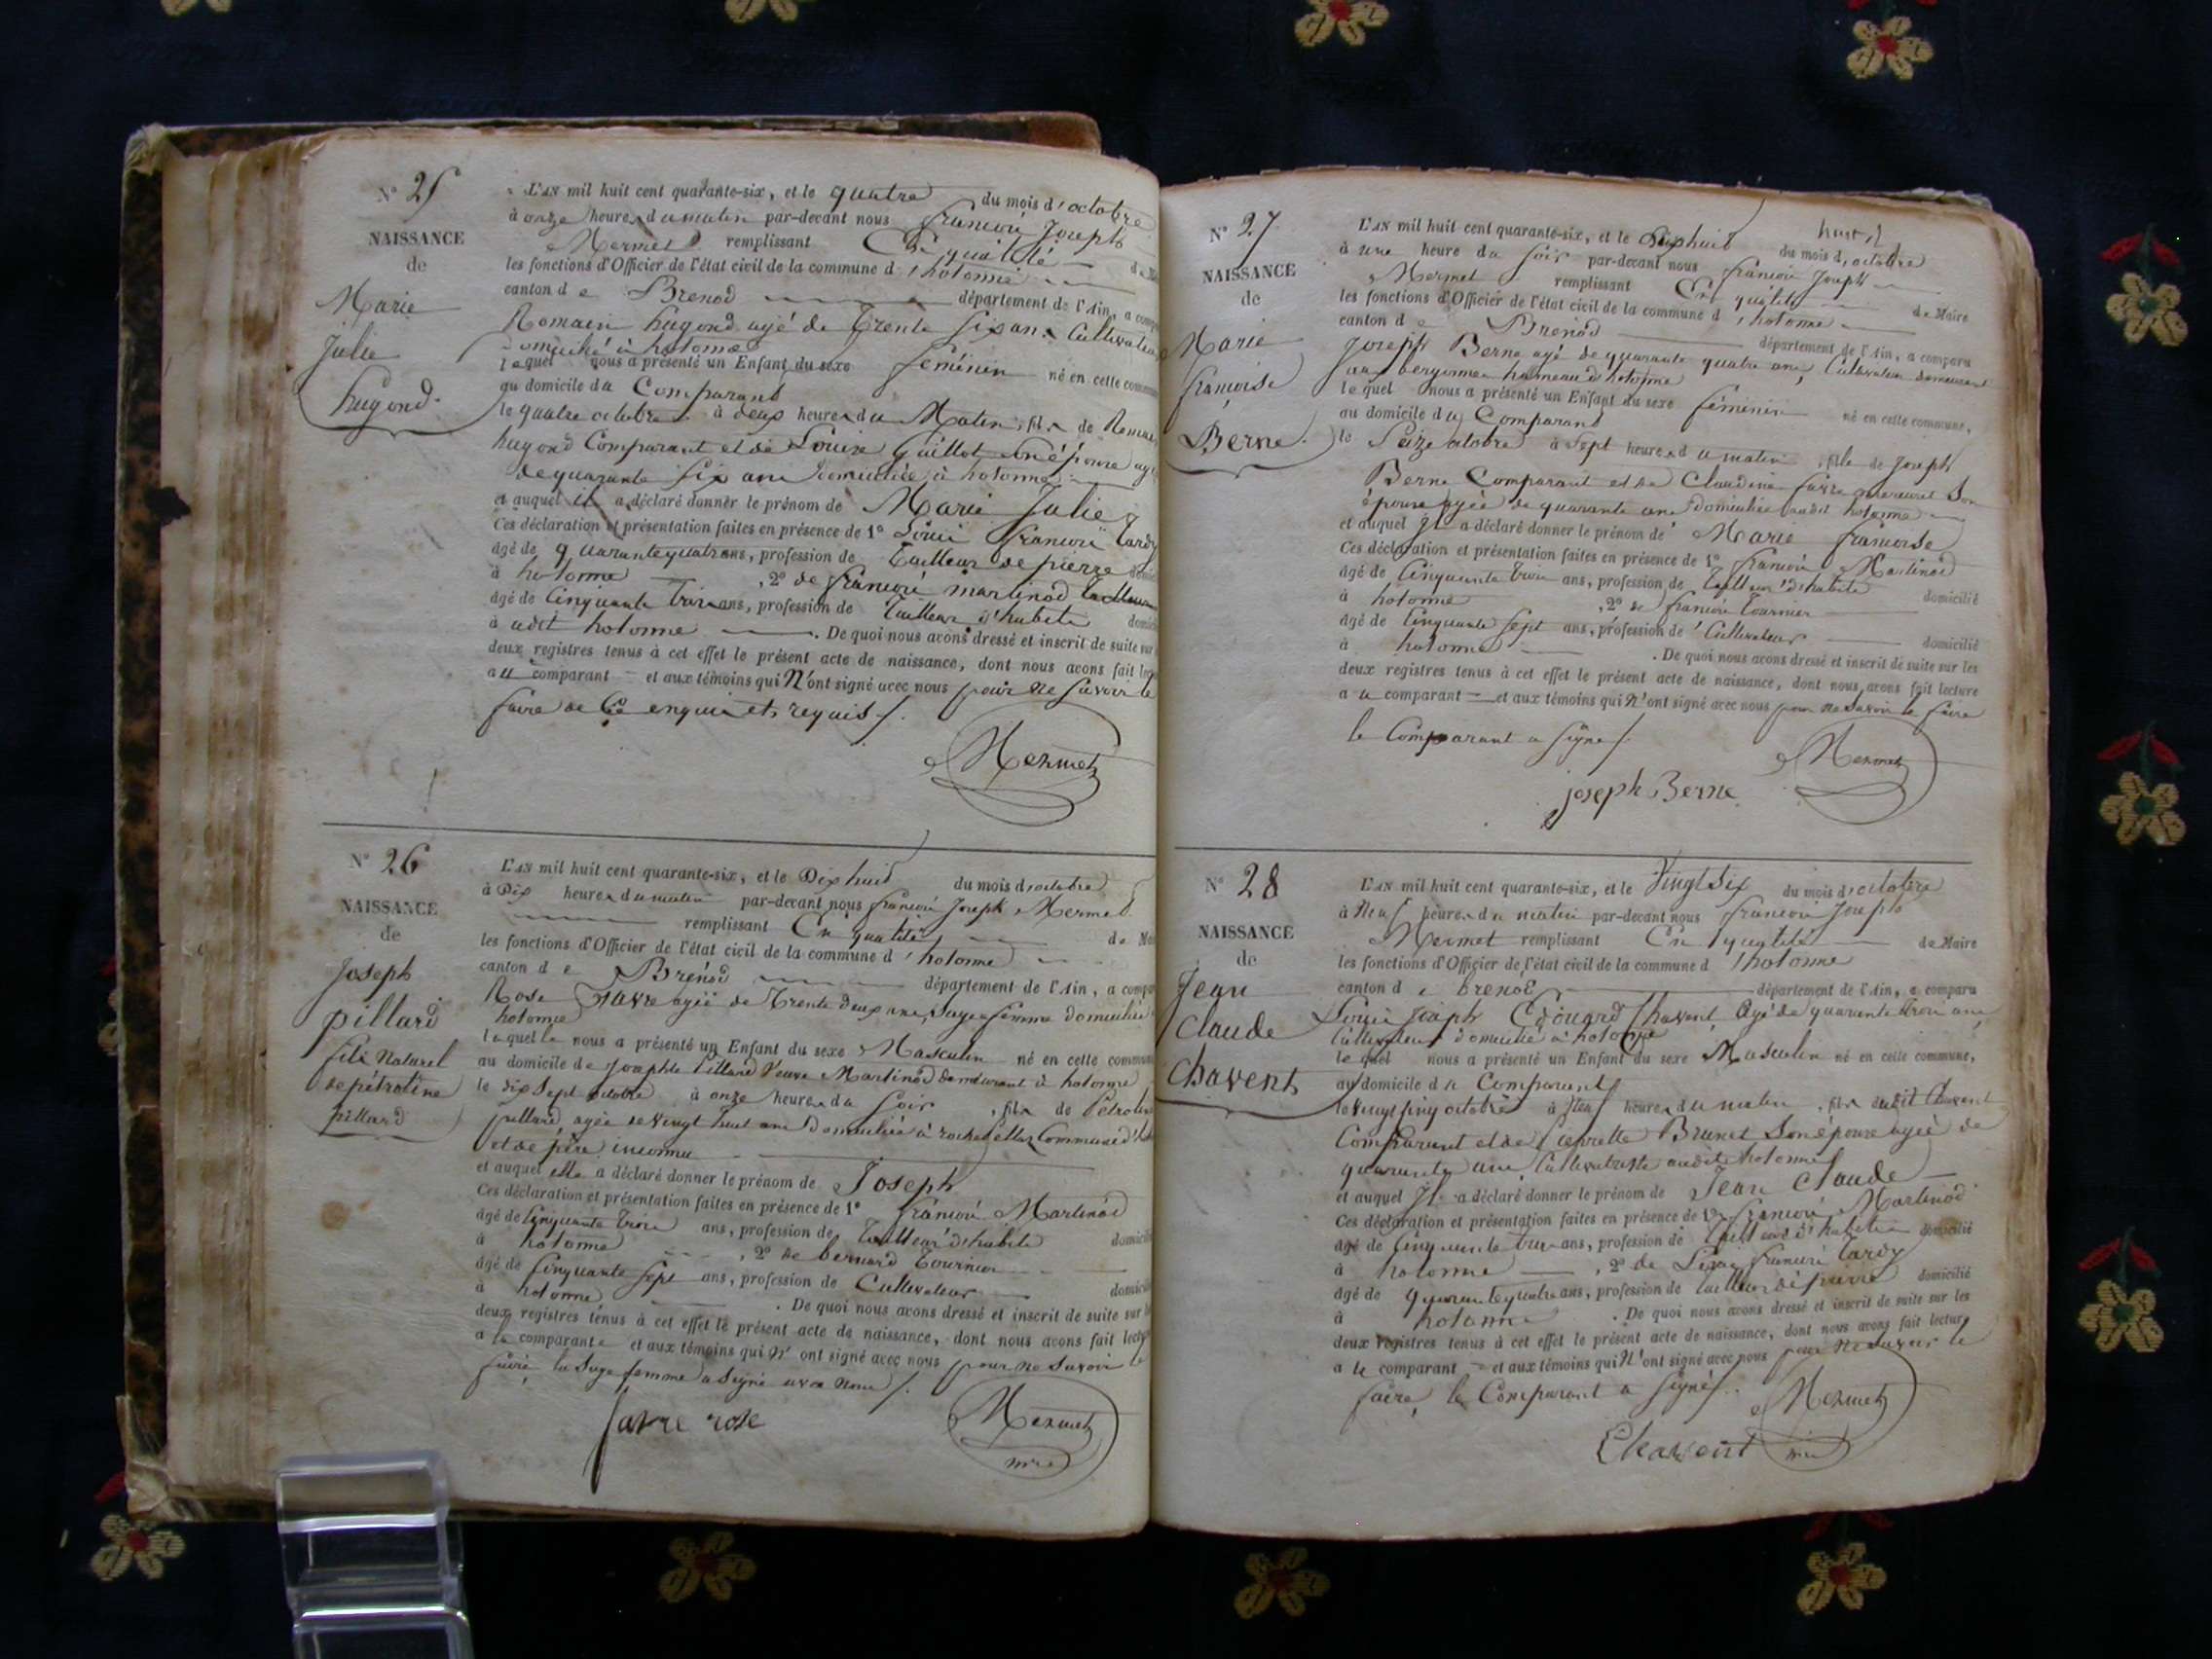 N° 25
NAISSANCE
de
Marie
Julie
hugond.
L'AN mil huit cent quarante-six, et le quatre du mois d'octobre
à onze heures du matin par-devant nous françois Joseph
Mermet remplissant En qualité de
les fonctions d'Officier de l'état civil de la commune d'hotonne
canton de Brenod département de l'Ain, a comp
Romain hugond agé de trente six ans Cultivateur
domicilié à hotonne
lequel nous a présenté un Enfant du sexe féminin né en cette commune
au domicile du Comparant
le quatre octobre à deux heures du Matin, fils de Romain
hugond Comparant et de Louise Guillot son épouse agée
de quarante six ans domiciliée à hotonne
et auquel il a déclaré donner le prénom de Marie Julie
Ces déclaration et présentation faites en présence de 1° Louis françois tardy
âgé de quarantequatre ans, profession de tailleur de pierre
à hotonne , 2° de françois martinod
âgé de Cinquante trois ans, profession de tailleur d'habits
à udit hotonne . De quoi nous avons dressé et inscrit de suite sur
deux registres tenus à cet effet le présent acte de naissance, dont nous avons fait
au comparant et aux témoins qui N'ont signé avec nous pour ne savoir le
faire de Ce enquis et requis /.
Mermet
N° 26
NAISSANCE
de
Joseph
pillard
fils Naturel
de pétroline
pillard
L'AN mil huit cent quarante-six, et le Dix huit du mois d'octobre
à Dix heures du matin par-devant nous françois Joseph Mermet
remplissant En qualité de
les fonctions d'Officier de l'état civil de la commune d'hotonne
canton de Brénod département de l'Ain, a comp
Rose favre agée de trente deux ans, sage femme domiciliée
hotonne
laquelle nous a présenté un Enfant du sexe Masculin né en cette commune
au domicile de Josephte Pillard Veuve Martinod demeurant à hotonne
le dix sept octobre à onze heures du soir , fils de Pétroline
pillard, agée de vingt huit ans domiciliée à Commune d'
et de père inconnu
et auquel elle a déclaré donner le prénom de Joseph
Ces déclaration et présentation faites en présence de 1° françois Martinod
âgé de Cinquante trois ans, profession de tailleur d'habits
à hotonne , 2° de bernard tournier
âgé de Cinquante sept ans, profession de Cultivateur
à hotonne . De quoi nous avons dressé et inscrit de suite sur
deux registres tenus à cet effet le présent acte de naissance, dont nous avons fait
a la comparante et aux témoins qui N'ont signé avec nous pour ne savoir le
faire, la sage femme a signé avec nous /.
favre rose
Mermet
N° 27
NAISSANCE
de
Marie
françoise
Berne.
L'AN mil huit cent quarante-six, et le Dixhuit du mois d'octobre
à une heure du soir par-devant nous françois Joseph
Mermet remplissant En qualité de Maire
les fonctions d'Officier de l'état civil de la commune d'hotonne
canton de Brénod département de l'Ain, a comparu
Joseph Berne agé de quarante quatre ans, Cultivateur demeurant
hameau d'hotonne
lequel nous a présenté un Enfant du sexe féminin né en cette commune,
au domicile du Comparant
le Seize octobre à sept heures du matin , fille de Joseph
Berne Comparant et de Claudine favre son
épouse agée de quarante ans domiciliée hotonne
et auquel Il a déclaré donner le prénom de Marie françoise
Ces déclaration et présentation faites en présence de 1° françois Martinod
âgé de Cinquante trois ans, profession de tailleur d'habits domicilié
à hotonne , 2° de françois tournier
âgé de Cinquante sept ans, profession de Cultivateur domicilié
à hotonne . De quoi nous avons dressé et inscrit de suite sur les
deux registres tenus à cet effet le présent acte de naissance, dont nous avons fait lecture
au comparant et aux témoins qui N'ont signé avec nous pour ne savoir le faire
le Comparant a signé /.
Mermet
joseph Berne
N° 28
NAISSANCE
de
Jean
Claude
Chavent
L'AN mil huit cent quarante-six, et le Vingt Six du mois d'octobre
à Neuf heures du matin par-devant nous françois Joseph
Mermet remplissant En qualité de Maire
les fonctions d'Officier de l'état civil de la commune d'hotonne
canton de brénod département de l'Ain, a comparu
Louis Joseph Edouard Chavent, Agé de quarante trois ans,
Cultivateur domicilié à hotonne
lequel nous a présenté un Enfant du sexe Masculin né en cette commune,
au domicile du Comparant
le vingt cinq octobre à Neuf heures du matin , fils dudit Chavent
Comparant et de Brunet Son épouse agée de
quarante ans Cultivatrice audit hotonne
et auquel Il a déclaré donner le prénom de Jean Claude
Ces déclaration et présentation faites en présence de 1° françois Martinod
âgé de Cinquante trois ans, profession de tailleur d'habits domicilié
à hotonne , 2° de Louis françois tardy
âgé de quarantequatre ans, profession de tailleur de pierre domicilié
à hotonne . De quoi nous avons dressé et inscrit de suite sur les
deux registres tenus à cet effet le présent acte de naissance, dont nous avons fait lecture
a le comparant et aux témoins qui N'ont signé avec nous pour ne savoir le
faire, le Comparant a signé /.
Mermet
Chavent